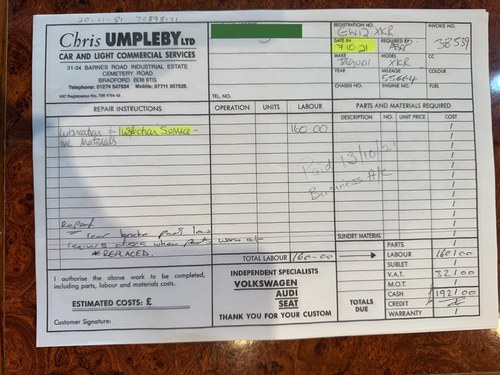 20-11-81 70898121
Chris UMPLEBY LTD
CAR AND LIGHT COMMERCIAL SERVICES
31-34 BARNES ROAD INDUSTRIAL ESTATE
CEMETERY ROAD
BRADFORD BD8 9TG
Telephone: 01274 547934 Mobile: 07711 857625
TEL. NO.
REGISTRATION NO.
XKR
DATE IN
7.10.21
REQUIRED BY:
MAKE
Jaguar
MODEL
XKR
YEAR
MILEAGE
55664
COLOUR
CHASSIS NO.
ENGINE NO.
INVOICE NO.
38539
CC
FUEL
REPAIR INSTRUCTIONS
OPERATION
UNITS
LABOUR
PARTS AND MATERIALS REQUIRED
DESCRIPTION
NO.
UNIT PRICE
COST
Lubrication + Inspection Service -
inc Materials
160 00
Paid 13/10/21
Business A/c
Report
rear brake pads low
requires discs when pads worn out
*REPLACED.
SUNDRY MATERIAL
TOTAL LABOUR 160-00
PARTS
LABOUR 160/00
SUBLET
V.A.T. 32/00
M.O.T.
CASH 192/00
CREDIT
WARRANTY
TOTALS DUE
I authorise the above work to be completed,
including parts, labour and materials costs.
ESTIMATED COSTS: £
Customer Signature:
INDEPENDENT SPECIALISTS
VOLKSWAGEN
AUDI
SEAT
THANK YOU FOR YOUR CUSTOM